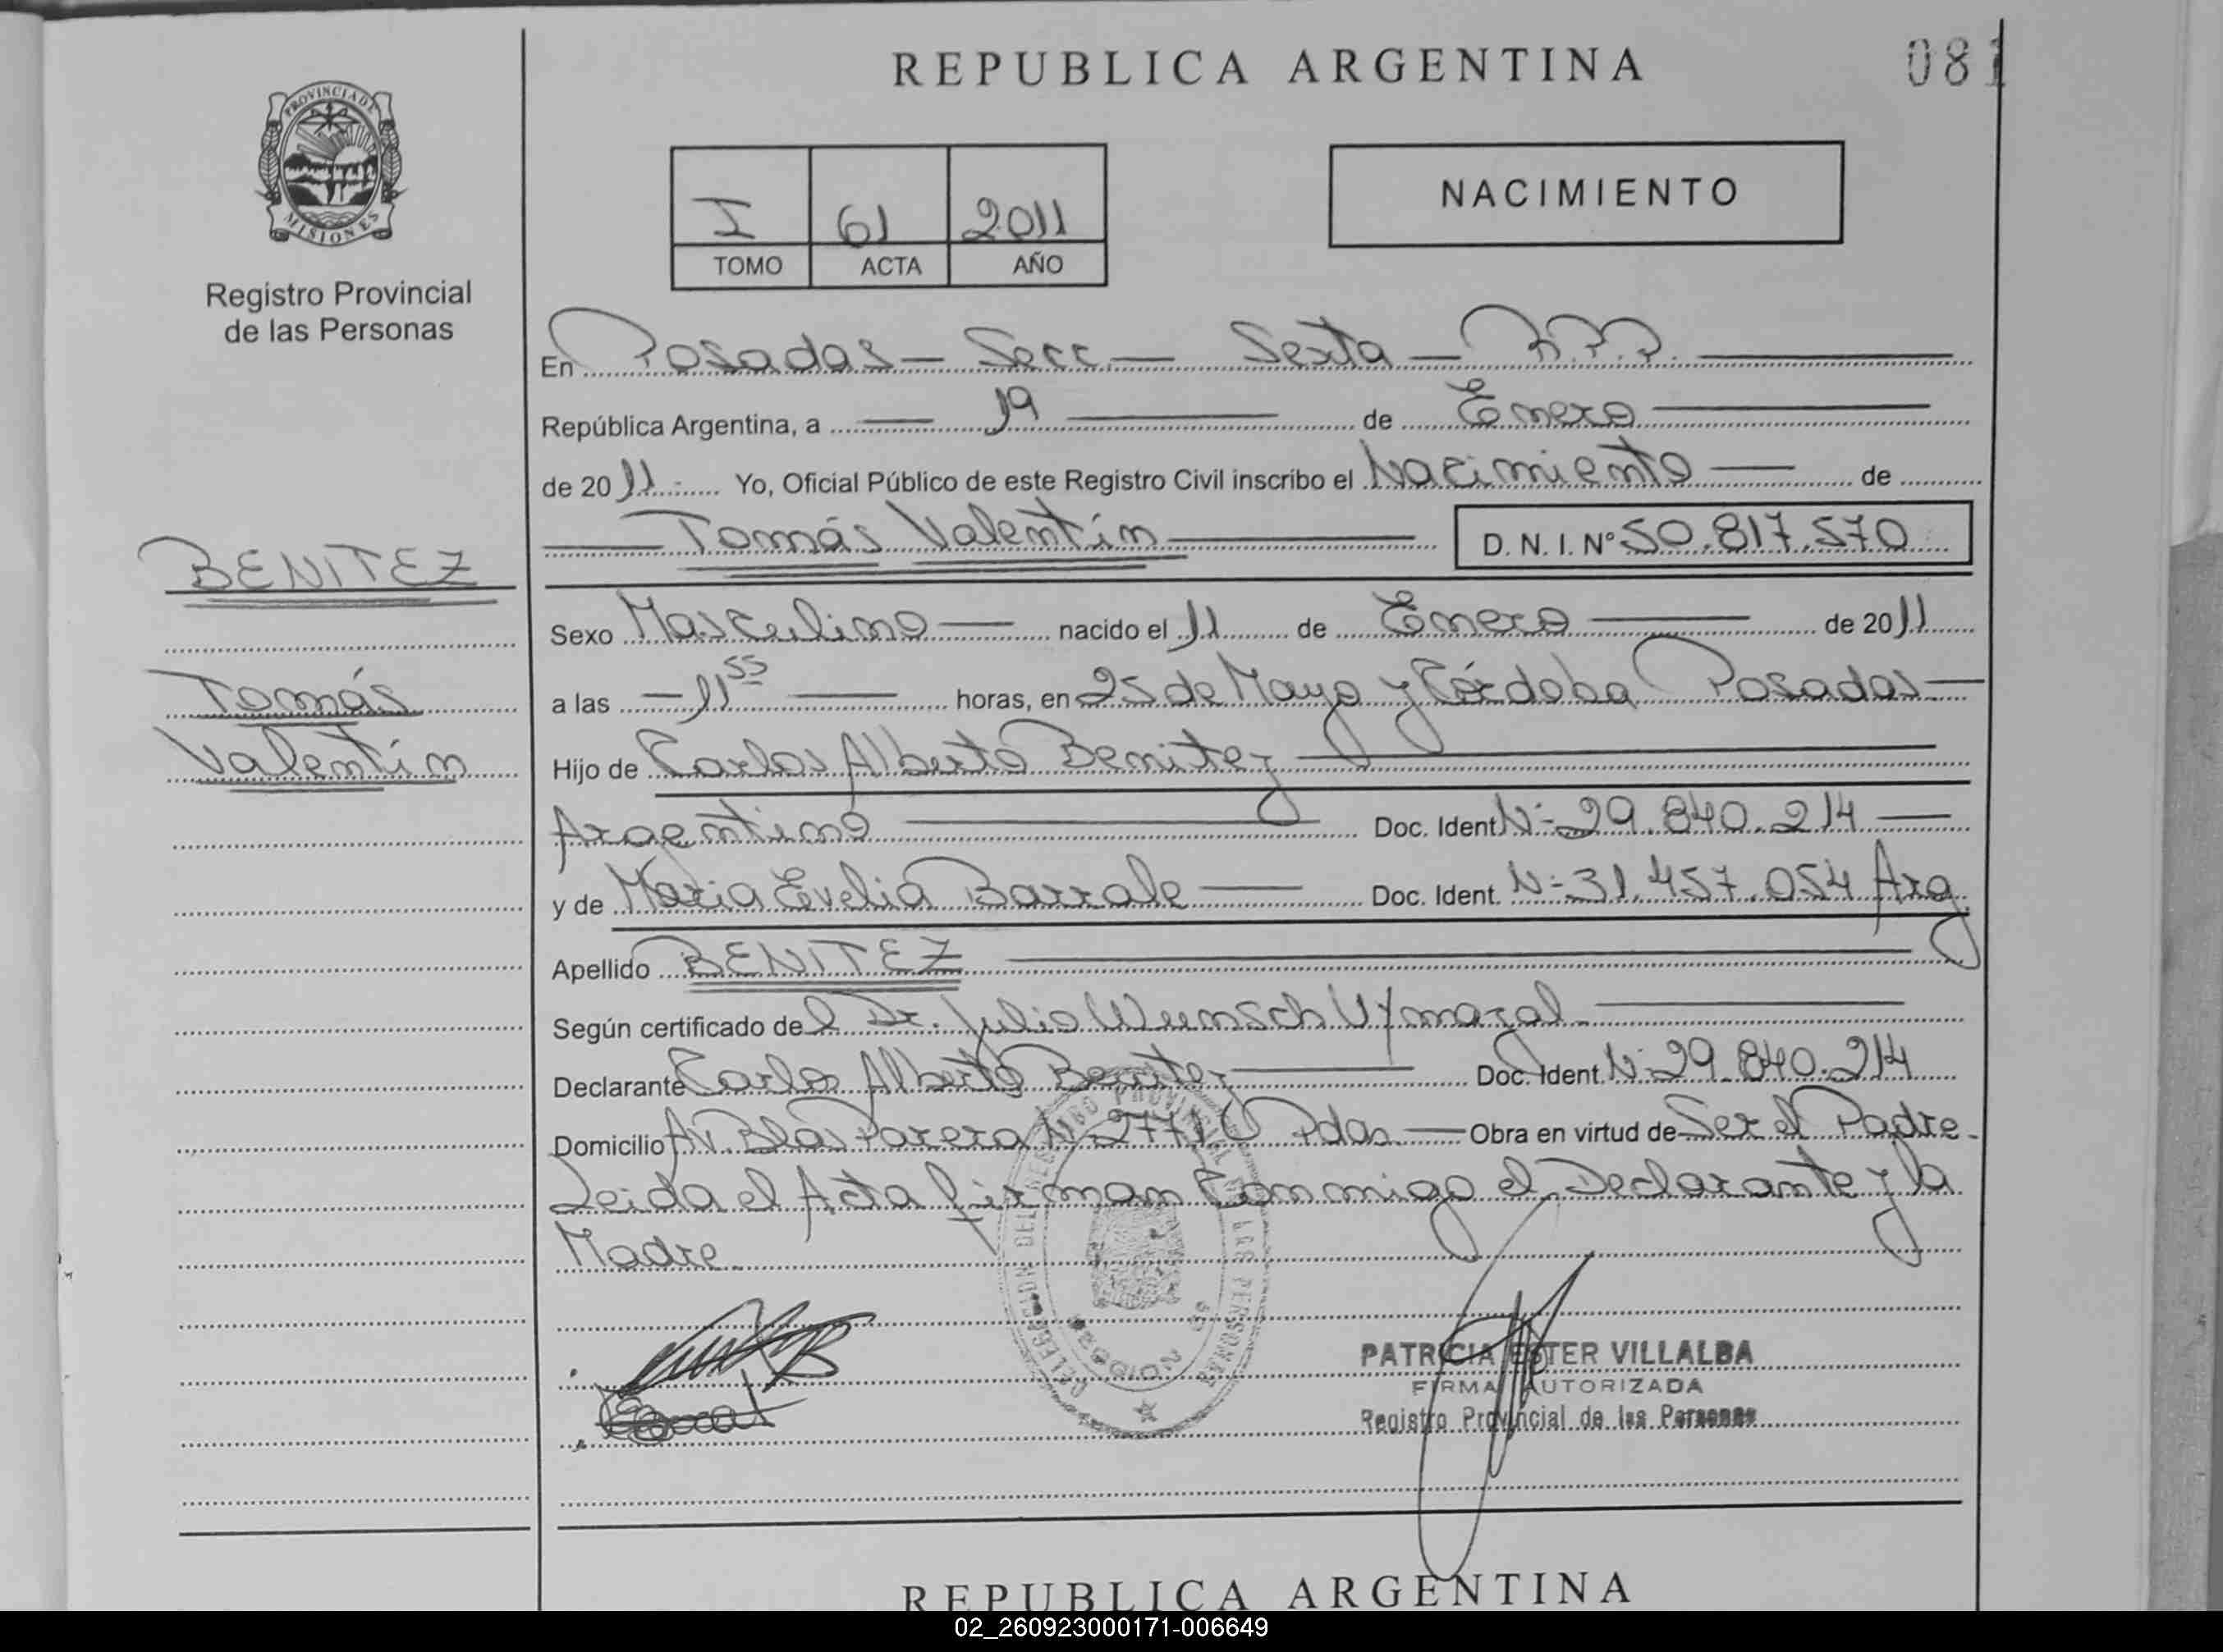 REPUBLICA ARGENTINA
081
PROVINCIA DE
MISIONES
Registro Provincial
de las Personas
NACIMIENTO
I 61 2011
TOMO ACTA AÑO
En Posadas - Secc - Sexta - R.P.P.
República Argentina, a 19 de Enero
de 2011 Yo, Oficial Público de este Registro Civil inscribo el Nacimiento de
Tomás Valentín D. N. I. Nº 50.817.570
BENITEZ
Tomás
Valentín
Sexo Masculino nacido el 11 de Enero de 2011
a las 11 55 horas, en 25 de Mayo y Córdoba Posadas
Hijo de Carlos Alberto Benitez
Argentino Doc. Ident. N: 29.840.214
y de Maria Evelia Barrale Doc. Ident. N: 31.457.054 Arg
Apellido BENITEZ
Según certificado del Dr. Julio Wunsch
Declarante Carlos Alberto Benitez Doc. Ident. N: 29.840.214
Domicilio Av. Blas Parera N Pdas. Obra en virtud de Ser el Padre.
Leida el Acta firman conmigo el Declarante y la
Madre.
DELEGACION DEL REGISTRO PROVINCIAL DE LAS PERSONAS
SECCION
PATRICIA ESTER VILLALBA
FIRMA AUTORIZADA
Registro Provincial de las Personas
REPUBLICA ARGENTINA
02_260923000171-006649